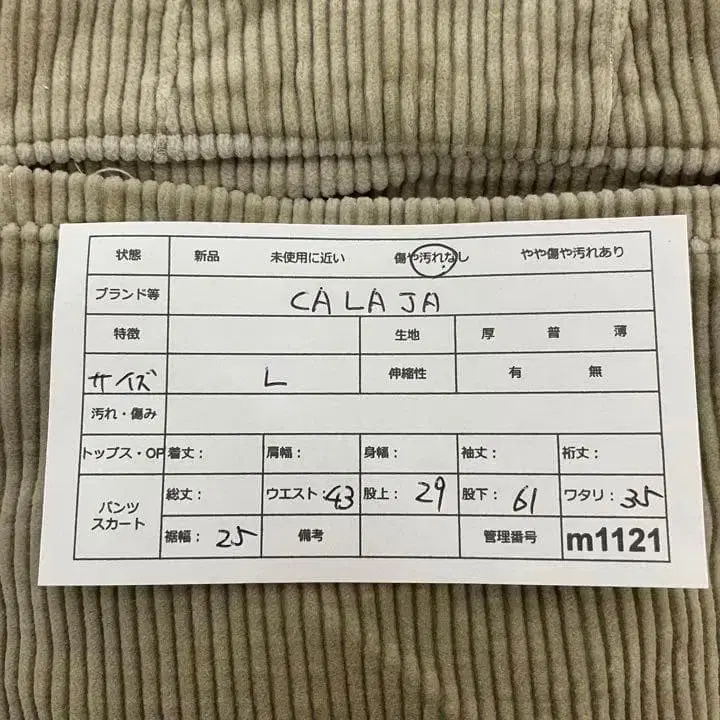 状態 新品 未使用に近い 傷や汚れなし やや傷や汚れあり
ブランド等 CALAJA
特徴 生地 厚 普 薄
サイズ L 伸縮性 有 無
汚れ・傷み
トップス・OP 着丈： 肩幅： 身幅： 袖丈： 裄丈：
パンツ スカート 総丈： ウエスト：43 股上：29 股下：61 ワタリ：35
裾幅：25 備考 管理番号 m1121